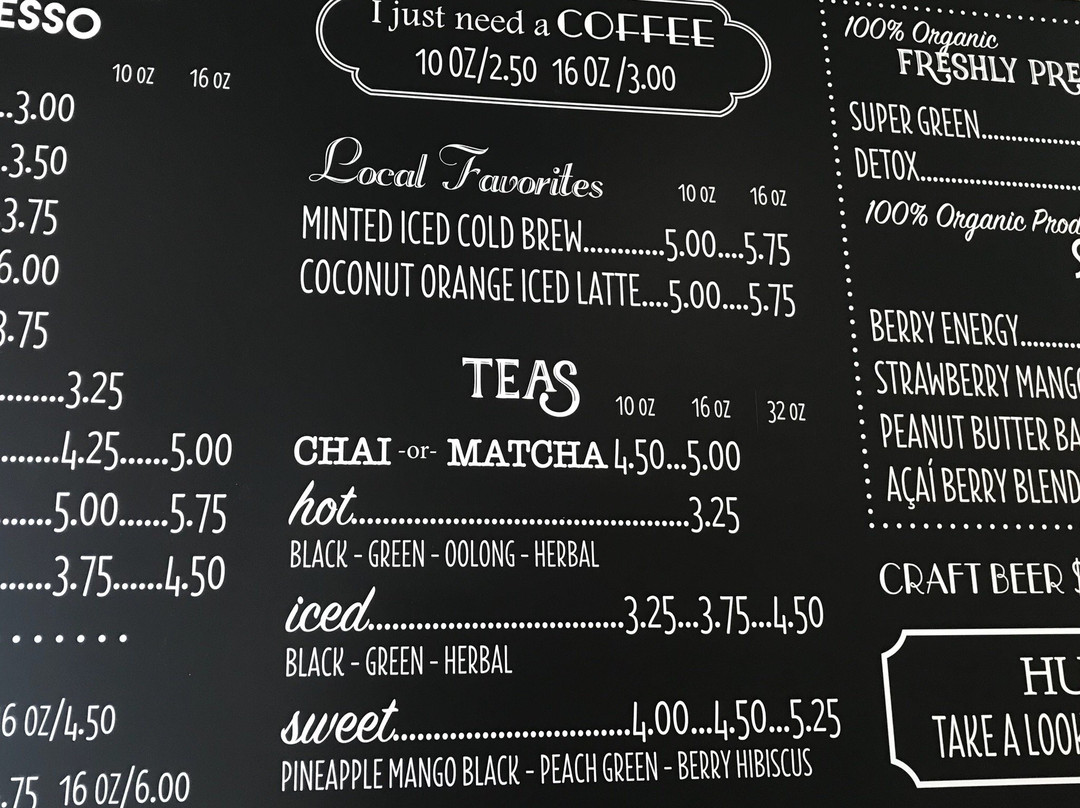 ESSO
10 OZ 16 OZ
..3.00
.3.50
3.75
6.00
3.75
.........3.25
........4.25......5.00
.......5.00......5.75
.......3.75......4.50
6 OZ/4.50
.75 16 OZ/6.00
I just need a COFFEE
10 OZ/2.50 16 OZ/3.00
Local Favorites 10 OZ 16 OZ
MINTED ICED COLD BREW............5.00....5.75
COCONUT ORANGE ICED LATTE....5.00....5.75
TEAS 10 OZ 16 OZ 32 OZ
CHAI -or- MATCHA 4.50...5.00
hot..................................................3.25
BLACK - GREEN - OOLONG - HERBAL
iced......................................3.25...3.75...4.50
BLACK - GREEN - HERBAL
sweet...................................4.00...4.50...5.25
PINEAPPLE MANGO BLACK - PEACH GREEN - BERRY HIBISCUS
100% Organic
FRESHLY PRE
SUPER GREEN...............
DETOX........................
100% Organic Prod
S
BERRY ENERGY.........
STRAWBERRY MANGO
PEANUT BUTTER BA
AÇAÍ BERRY BLEND
CRAFT BEER $
HU
TAKE A LOOK